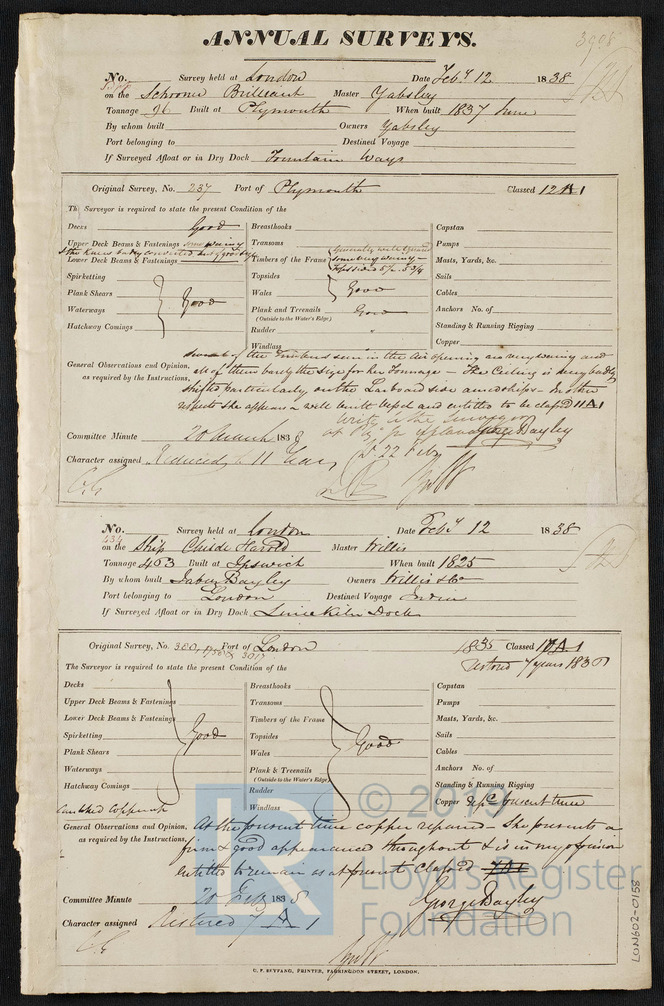 ANNUAL SURVEYS.
3908
No. Survey held at London Date Feby 12 1838
on the Schooner Brilliant Master Yabsley
Tonnage 96 Built at Plymouth When built 1837 June
By whom built Owners Yabsley
Port belonging to Destined Voyage
If Surveyed Afloat or in Dry Dock Fountain Ways
Original Survey, No. 237 Port of Plymouth Classed 12 A 1
The Surveyor is required to state the present Condition of the
Decks Good
Upper Deck Beams & Fastenings some wainy
& the knees badly converted but good
Lower Deck Beams & Fastenings
Spirketting
Plank Shears
Waterways
Hatchway Comings
Good
Breasthooks
Transoms
Timbers of the Frame
some very wainy
Topsides
Wales
Good
Plank and Treenails Good
(Outside to the Water's Edge)
Rudder "
Windlass
Capstan
Pumps
Masts, Yards, &c.
Sails
Cables
Anchors No. of
Standing & Running Rigging
Copper
General Observations and Opinion, several of the Timbers seen in the Air opening are very wainy and
as required by the Instructions, all of them barely the size for her Tonnage – The Ceiling is very badly
shifted particularly on the Larboard side amidships – In other
respects she appears a well built vessel and entitled to be classed 11 A 1
Write to the Surveyor
at Py for explanation George Bayley
22 Feb
Committee Minute 20 March 1838
Character assigned Reduced to 11 Years
No. Survey held at London Date Feby 12 1838
434
on the Ship Childe Harold Master Willis
Tonnage 463 Built at Ipswich When built 1825
By whom built Jabez Bayley Owners Willis & Co
Port belonging to London Destined Voyage India
If Surveyed Afloat or in Dry Dock Limekiln Dock
Original Survey, No. Port of London 1835 Classed 10 A 1
Restored 7 years 1836
The Surveyor is required to state the present Condition of the
Decks
Upper Deck Beams & Fastenings
Lower Deck Beams & Fastenings
Spirketting
Plank Shears
Waterways
Hatchway Comings
Good
Breasthooks
Transoms
Timbers of the Frame
Topsides
Wales
Plank & Treenails
(Outside to the Water's Edge)
Rudder
Windlass
Good
Capstan
Pumps
Masts, Yards, &c.
Sails
Cables
Anchors No. of
Standing & Running Rigging
Copper repd present time
General Observations and Opinion, At the present time copper repaired – She presents a
as required by the Instructions, firm & good appearance throughout & is in my opinion
entitled to remain as at present Classed 7 A 1
George Bayley
Committee Minute 20 Feby 1838
Character assigned Restored 7 A 1
C. F. SEYFANG, PRINTER, FARRINGDON STREET, LONDON.
LON602-0158
LR
© 2019
Lloyd's Register
Foundation